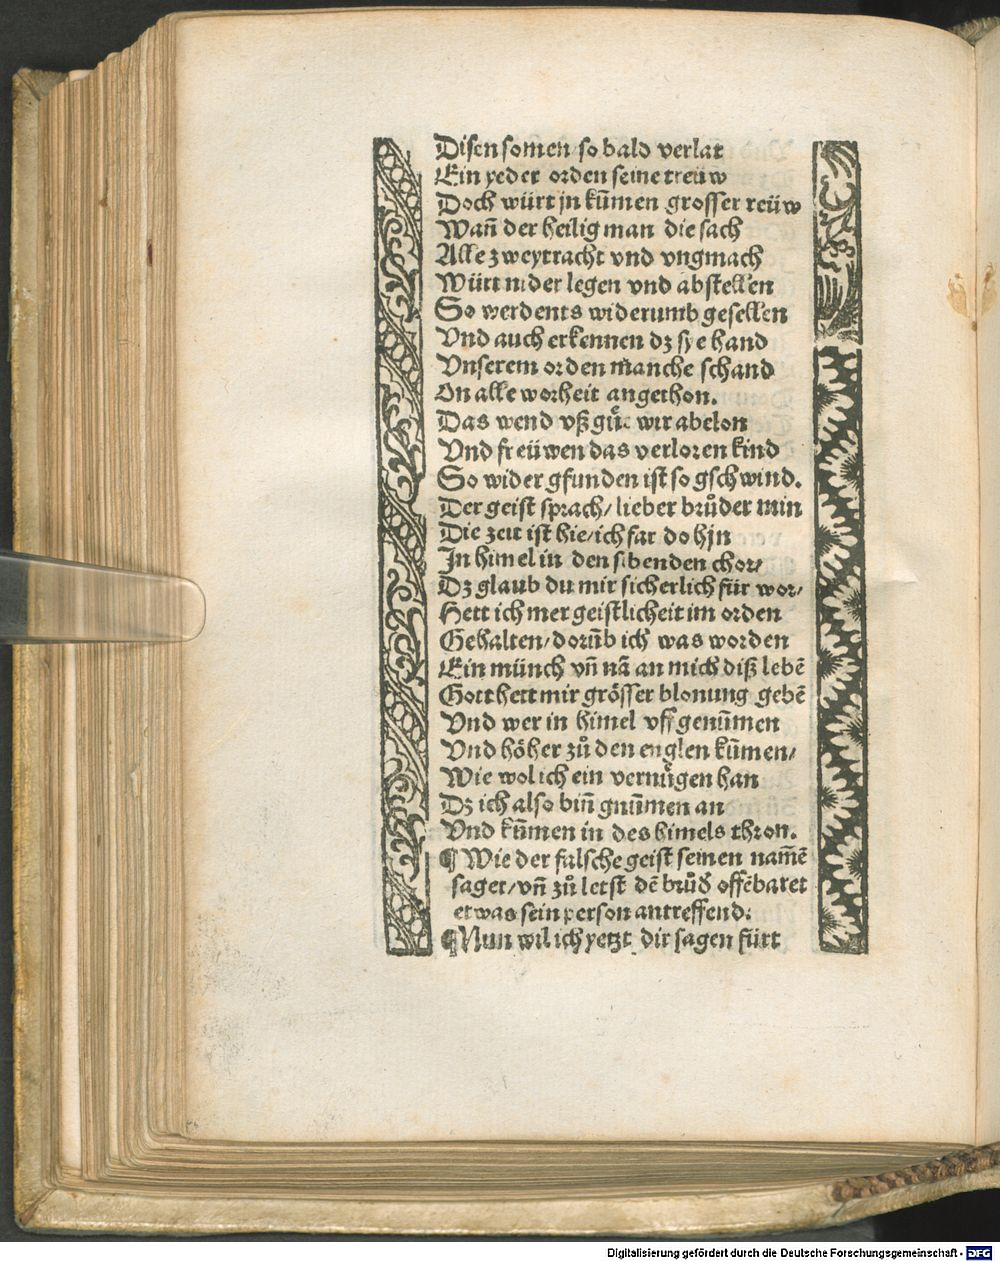 Disen somen so bald verlat
Ein yeder orden seine treüw
Doch würt jn kūmen grosser reüw
Wañ der heilig man die sach
Alle zweytracht vnd vngmach
Würt nider legen vnd abstellen
So werdents widerumb gesellen
Vnd auch erkennen dz sye hand
Vnserem orden manche schand
On alle worheit angethon.
Das wend vß gůte wir abelon
Vnd freüwen das verloren kind
So wider gfunden ist so gschwind.
Der geist sprach/ lieber brůder min
Die zeit ist hie/ ich far do hjn
In himel in den sibenden chor/
Dz glaub du mir sicherlich für wor/
Hett ich mer geistlicheit im orden
Gehalten/ dorūb ich was worden
Ein münch vñ nā an mich diß lebē
Gott hett mir grösser blonung gebē
Vnd wer in himel vff genūmen
Vnd höher zů den englen kūmen/
Wie wol ich ein vernůgen han
Dz ich also biñ gnūmen an
Vnd kūmen in des himels thron.
¶ Wie der falsche geist seinen namē
saget/ vñ zů letst dē brůd offēbaret
etwas sein person antreffend.
¶ Nun wil ich yetzt dir sagen fürt
Digitalisierung gefördert durch die Deutsche Forschungsgemeinschaft - DFG